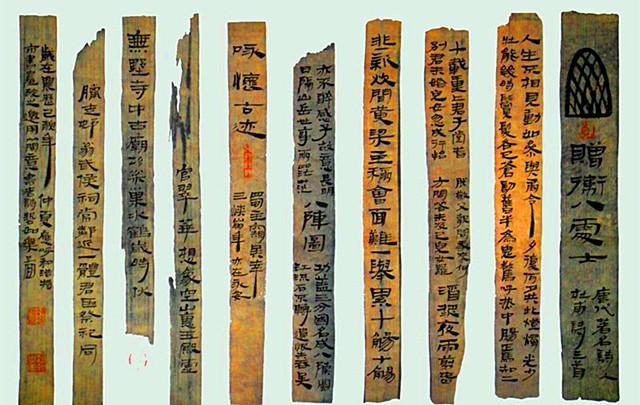 贈衛八處士
唐代著名詩人
杜甫詩三首
人生不相見動如參與商今夕復何夕共此燈燭光少
壯能幾時鬢髮各已蒼訪舊半為鬼驚呼熱中腸焉知二
十載重上君子堂昔
別君未婚兒女忽成行怡
然敬父執問我來何
方問答未及已兒女羅
酒漿夜雨剪春
韭新炊間黃粱主稱會面難一舉累十觴十觴
亦不醉感子故意長明
日隔山岳世事兩茫茫
八陣圖
功蓋三分國名成八陣圖
江流石不轉遺恨失吞吳
咏懷古迹
蜀主窺吳幸
三峽崩年亦在永安
宮翠華想象空山里玉殿虛
無野寺中古廟杉松巢水鶴歲時伏
臘走村翁武侯祠屋鄰近一體君臣祭祀同
歲在農曆己
年仲夏